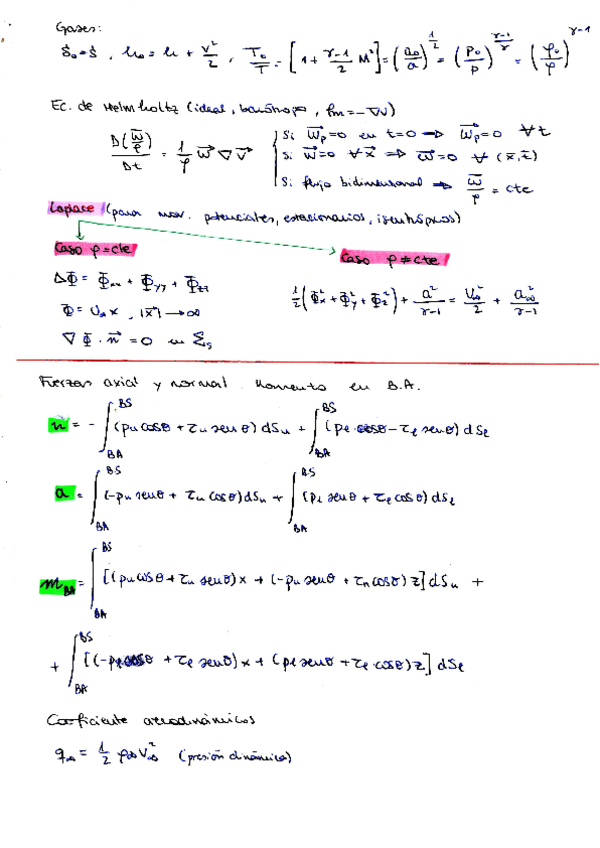 Gases:
ṡ₀ = ṡ , h₀ = h + v²/2 , T₀/T = [1 + (γ-1)/2 M²] = (a₀/a)^(1/2) = (p₀/p)^((γ-1)/γ) = (ρ₀/ρ)^(γ-1)
Ec. de Helmholtz (ideal, barótropo, fm = -∇U)
D(w⃗/ρ)/Dt = 1/ρ w⃗ ∇ v⃗
Si w⃗p = 0 en t=0 → w⃗p = 0 ∀t
Si w⃗ = 0 ∀ x⃗ ⇒ w⃗ = 0 ∀ (x⃗, t)
Si flujo bidimensional → w⃗/ρ = cte
Laplace (para mov. potenciales, estacionarios, isentrópicos)
Caso ρ = cte
Caso ρ ≠ cte
ΔΦ = Φxx + Φyy + Φzz
Φ = U∞ x , |x⃗| → ∞
∇Φ · n⃗ = 0 en Σs
1/2 (Φx² + Φy² + Φz²) + a²/(γ-1) = U∞²/2 + a∞²/(γ-1)
Fuerzas axial y normal. Momento en B.A.
n = - ∫_BA^BS (pu cosθ + τu senθ) dSu + ∫_BA^BS (pl cosθ - τl senθ) dSl
a = ∫_BA^BS (-pu senθ + τu cosθ) dSu + ∫_BA^BS (pl senθ + τl cosθ) dSl
m_BA = ∫_BA^BS [(pu cosθ + τu senθ) x + (-pu senθ + τu cosθ) z] dSu +
+ ∫_BA^BS [(-pl cosθ + τl senθ) x + (pl senθ + τl cosθ) z] dSl
Coeficiente aerodinámicos
q∞ = 1/2 ρ∞ V∞² (presión dinámica)